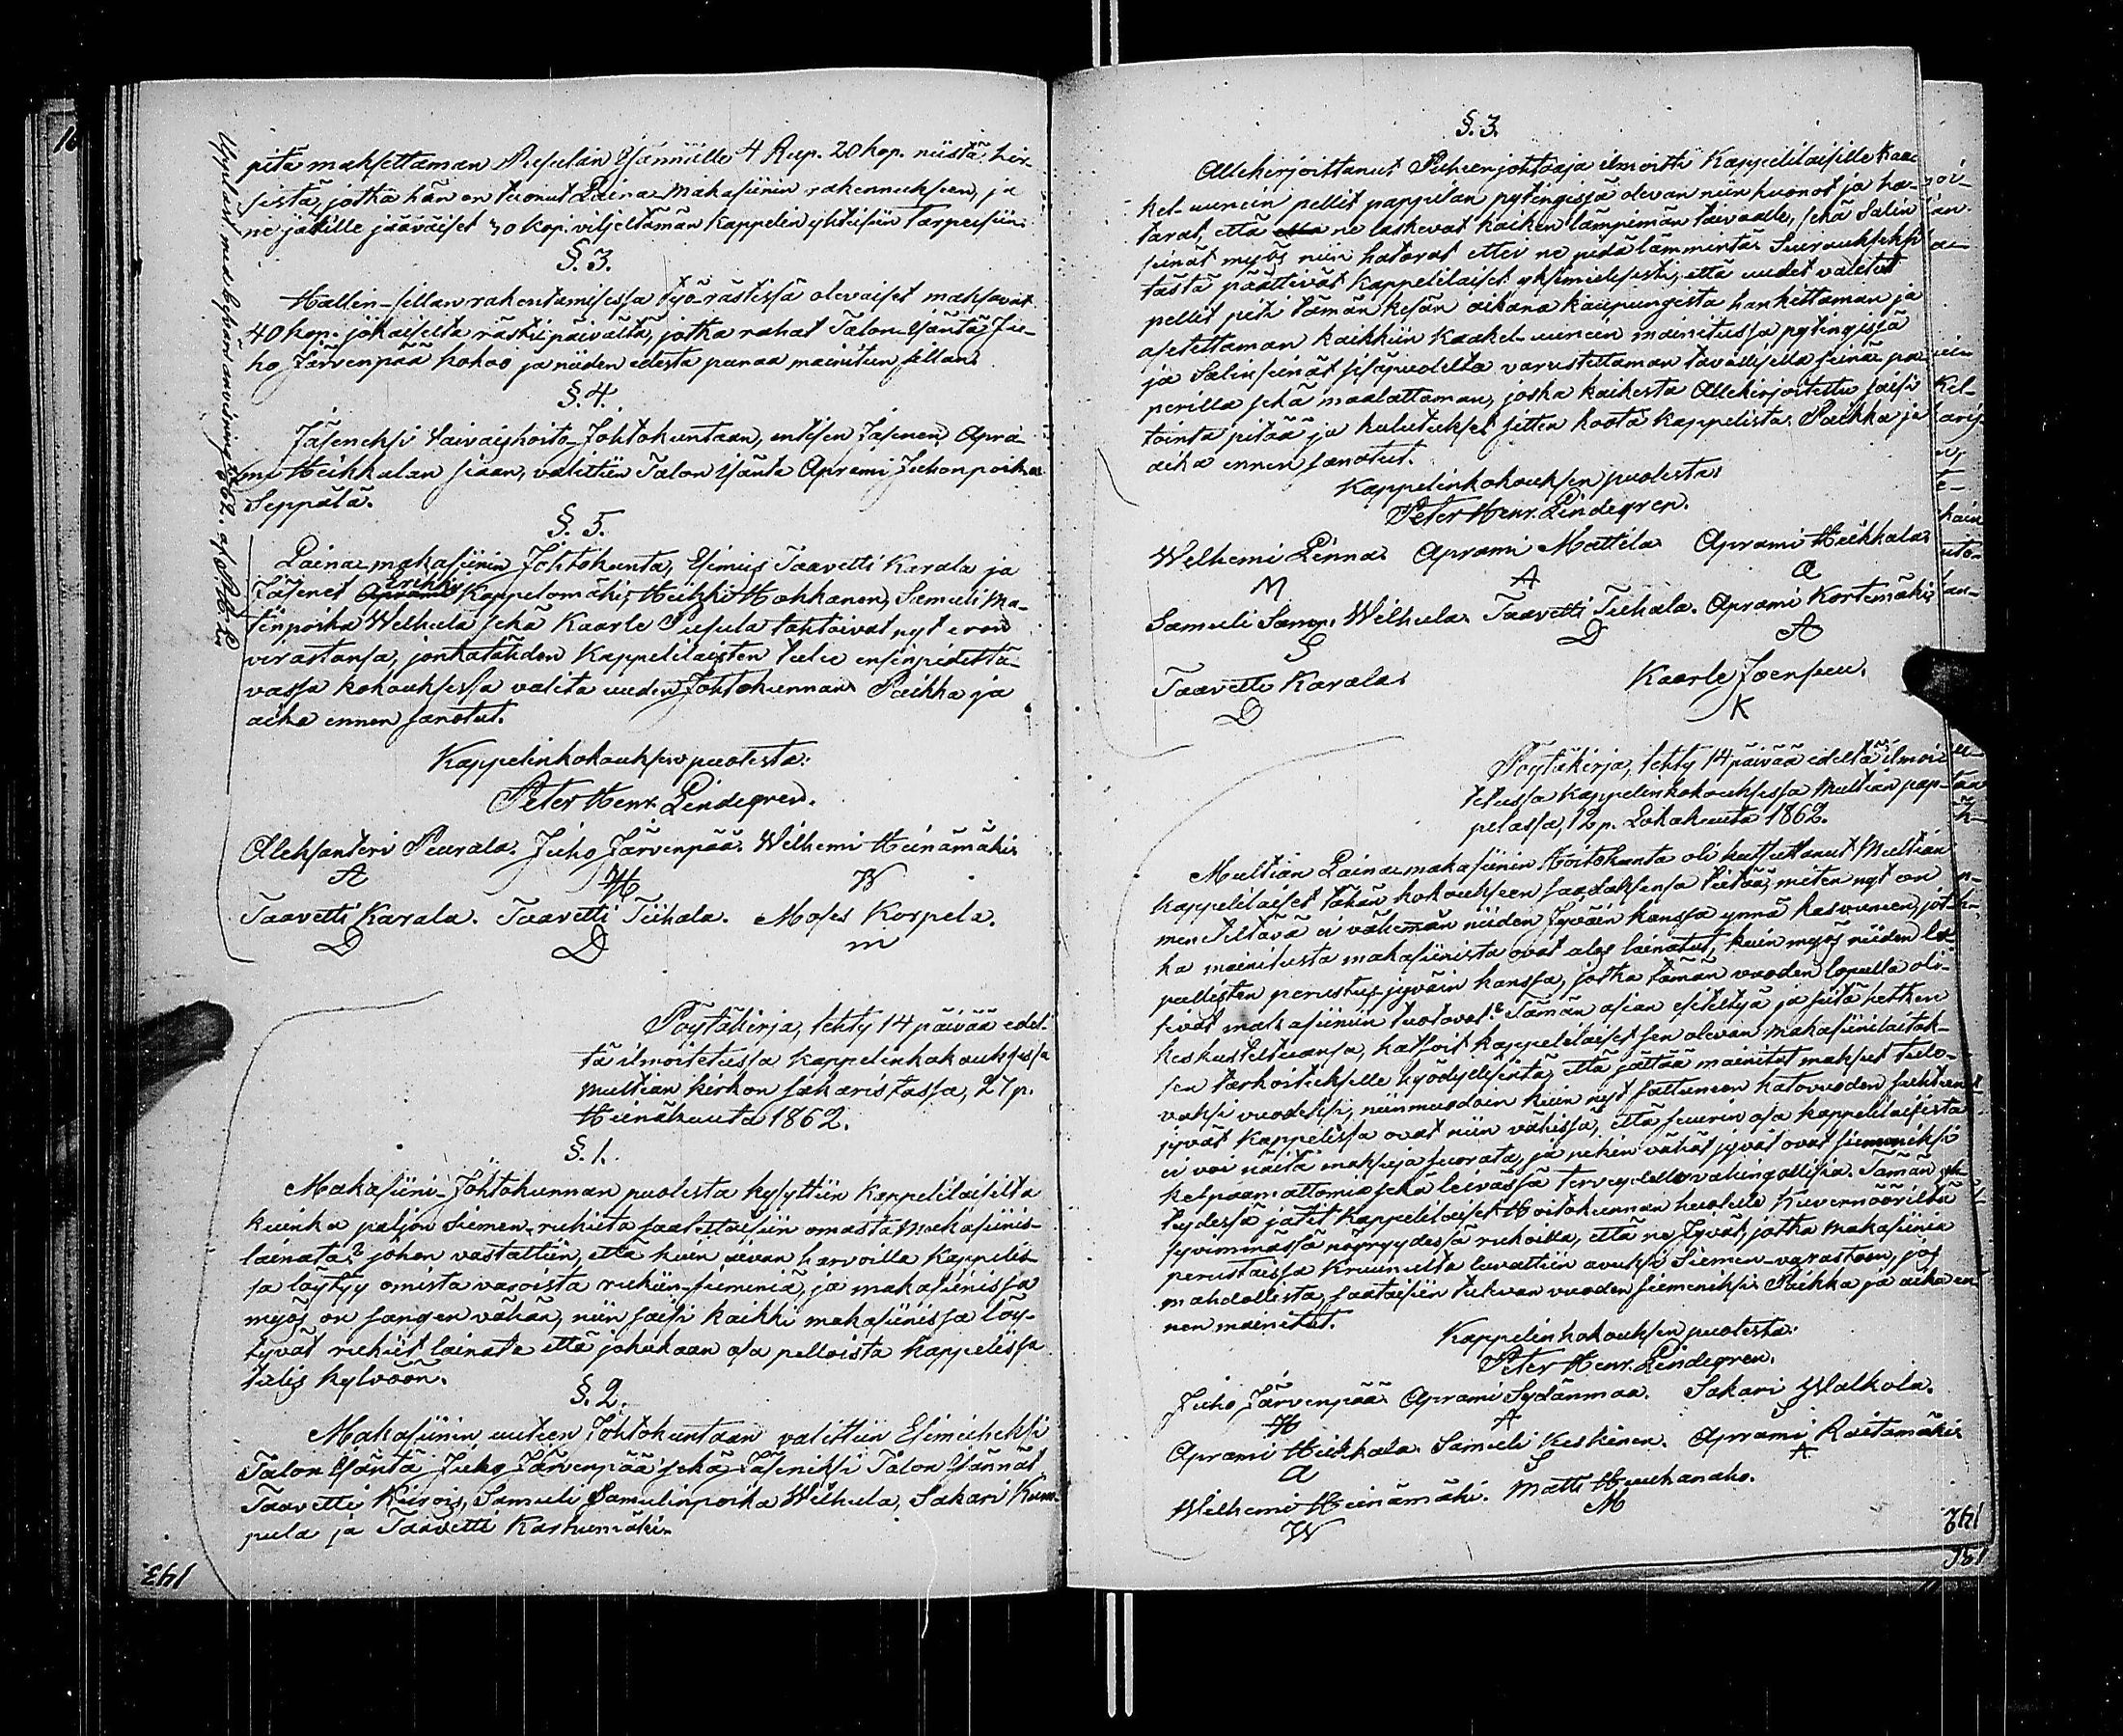 pitä maksettaman Pusulan Isännälle 4 Rup. 20 kop. niistä hir-
sistä, jotka hän on tuonut Laina-makasiinin rakennukseen, ja
ne jätille jääväiset 30 kop. viljeltämän Kappelin yhteisiin tarpeisiin.
§. 3.
Hallin-sillan rakentamisessa työ-rästissä olevaiset maksavat
40 kop. jokaiselta rästipäivältä, jotka rahat Talon-Isäntä Ju-
ho Järvenpää kokoo ja niiden edestä panaa mainitun sillan.
§. 4.
Jäseneksi Vaivaishoito-Johtokuntaan, entisen Jäsenen Apra-
mi Heikkalan siaan, valittiin Talon Isäntä Aprami Juhonpoika
Seppälä.
§. 5.
Laina-makasiinin Johtokunta, Esimies Taavetti Karala ja
Jäsenet Erkki Kappelomäki, Heikki Hokkanen, Samuli Ma-
tinpoika Wehula sekä Kaarle Pusula tahtoivat nyt eron
virastansa, jonkatähden Kappelilaisten tulee ensinpidettä-
vässä kokouksessa valita uuden Johtokunnan. Paikka ja
aika ennen sanotut.
Kappelinkokouksen puolesta:
Peter Henr. Lindegren.
Aleksanteri Peurala. Juho Järvenpää. Wilhemi Heinämäki.
A H W
Taavetti Karala. Taavetti Tiihala. Moses Korpela.
D D m
Upplast med besvärsanvisning 1862. af P. H. L.
Pöytäkirja, tehty 14 päivää edel-
tä ilmoitetussa kappelinkokouksessa
Multian kirkon sakaristassa, 27 p.
Heinäkuuta 1862.
§. 1.
Makasiini-Johtokunnan puolesta kysyttiin Kappelilaisilta
kuinka paljon Siemen-rukiita saataisiin omasta Makasiinis-
lainata? johon vastattiin, että kuin aivan harvoilla Kappelis-
sa löytyy omista varoista rukiin-siemeniä, ja makasiinissa
myös on sangen vähän, niin saisi kaikki makasiinissa löy-
tyvät rukiit lainata että jokukaan osa pelloista Kappelissa
tulis kylvöön.
§. 2.
Makasiinin uuteen Johtokuntaan valittiin Esimieheksi
Talon Isäntä Juho Järvenpää sekä Jäseniksi Talon Isännät
Taavetti Kiirois, Samuli Samulinpoika Wilhula, Sakari Kum-
pula ja Taavetti Karhumäki.
143
§. 3.
Allekirjoittanut Puheenjohtaja ilmoitti Kappelilaisille Kaa-
kel-uunein pellit pappilan pytingissä olevan niin huonot ja ha-
tarat, että ne laskevat kaiken lämpimän taivaalle, sekä Salin
seinät myös niin hatarat ettei ne pidä lämmintä. Seurauksesi
tästä päättivät Kappelilaiset yksimielisesti, että uudet valetut
pellit piti tämän kesän aikana kaupungista hankittaman ja
asetettaman kaikkiin Kaakel-uunein mainitussa pytingissä
ja Salin seinät sisäpuolelta varustettaman tavallisella seinä-pa-
perilla sekä maalattaman, joska kaikesta Allekirjoitettu saisi
tointa pitää ja kulutukset sitten koota Kappelista. Paikka ja
aika ennen sanotut.
Kappelinkokouksen puolesta:
Peter Henr. Lindegren.
Welhemi Linna. Aprami Mattila. Aprami Heikkala.
M A A
Samuli Samp. Wilhula. Taavetti Tiihala. Aprami Kortemäki.
S D A
Taavetti Karala. Kaarle Joensuu.
D K
Pöytäkirja, tehty 14 päivää edeltä ilmoi-
tetussa Kappelinkokouksessa Multian pap-
pelassa, 12 p. Lokakuuta 1862.
Multian Lainamakasiinin Hoitokunta oli kutsuttanut Multian
kappelilaiset tähän kokoukseen saadaksensa tietää, miten nyt on
meneteltävä ei vähemän niiden Jyväin kanssa ynnä kasvuineen, jot-
ka mainitusta makasiinista ovat ulos lainatut, kuin myös niiden lo-
pullisten perustus-jyväin kanssa, jotka tämän vuoden lopulla oli-
sivat makasiiniin tuotavat? Tämän asian esiteltyä ja siitä hetken
keskusteltuansa, katsoit kappelilaiset sen olevan makasiinilaitok-
sen tarkoitukselle hyödyllisintä, että jättää mainitut maksut tule-
vaksi vuodeksi, niinmuodoin kuin nyt sattuneen katovuoden suhteen
jyvät Kappelissa ovat niin vähissä, että suurin osa kappelilaisista
ei voi näitä maksuja suorata, ja nekin vähät jyvät ovat siemeniksi
kelpaamattomia sekä leivässä terveydelle vahingollisia. Tämän oh-
tydessä jätit Kappelilaiset Hoitokunnan huolelle Kuvernööriltä
syvimmässä nöyryydessä rukoilla, että ne Jyvät, jotka makasiinia
perustaissa Kruunulta luvattiin avuksi Siemen-varastoon, jos
mahdollista, saataisiin tulevan vuoden siemeniksi. Paikka ja aika en-
nen mainitut.
Kappelinkokouksen puolesta:
Peter Henr. Lindegren.
Juho Järvenpää. Aprami Sydänmaa. Sakari Walkola.
H A S
Aprami Heikkala. Samuli Keskinen. Aprami Raitamäki.
A S A
Wilhemi Heinämäki. Matti Huuhanaho.
W M
142